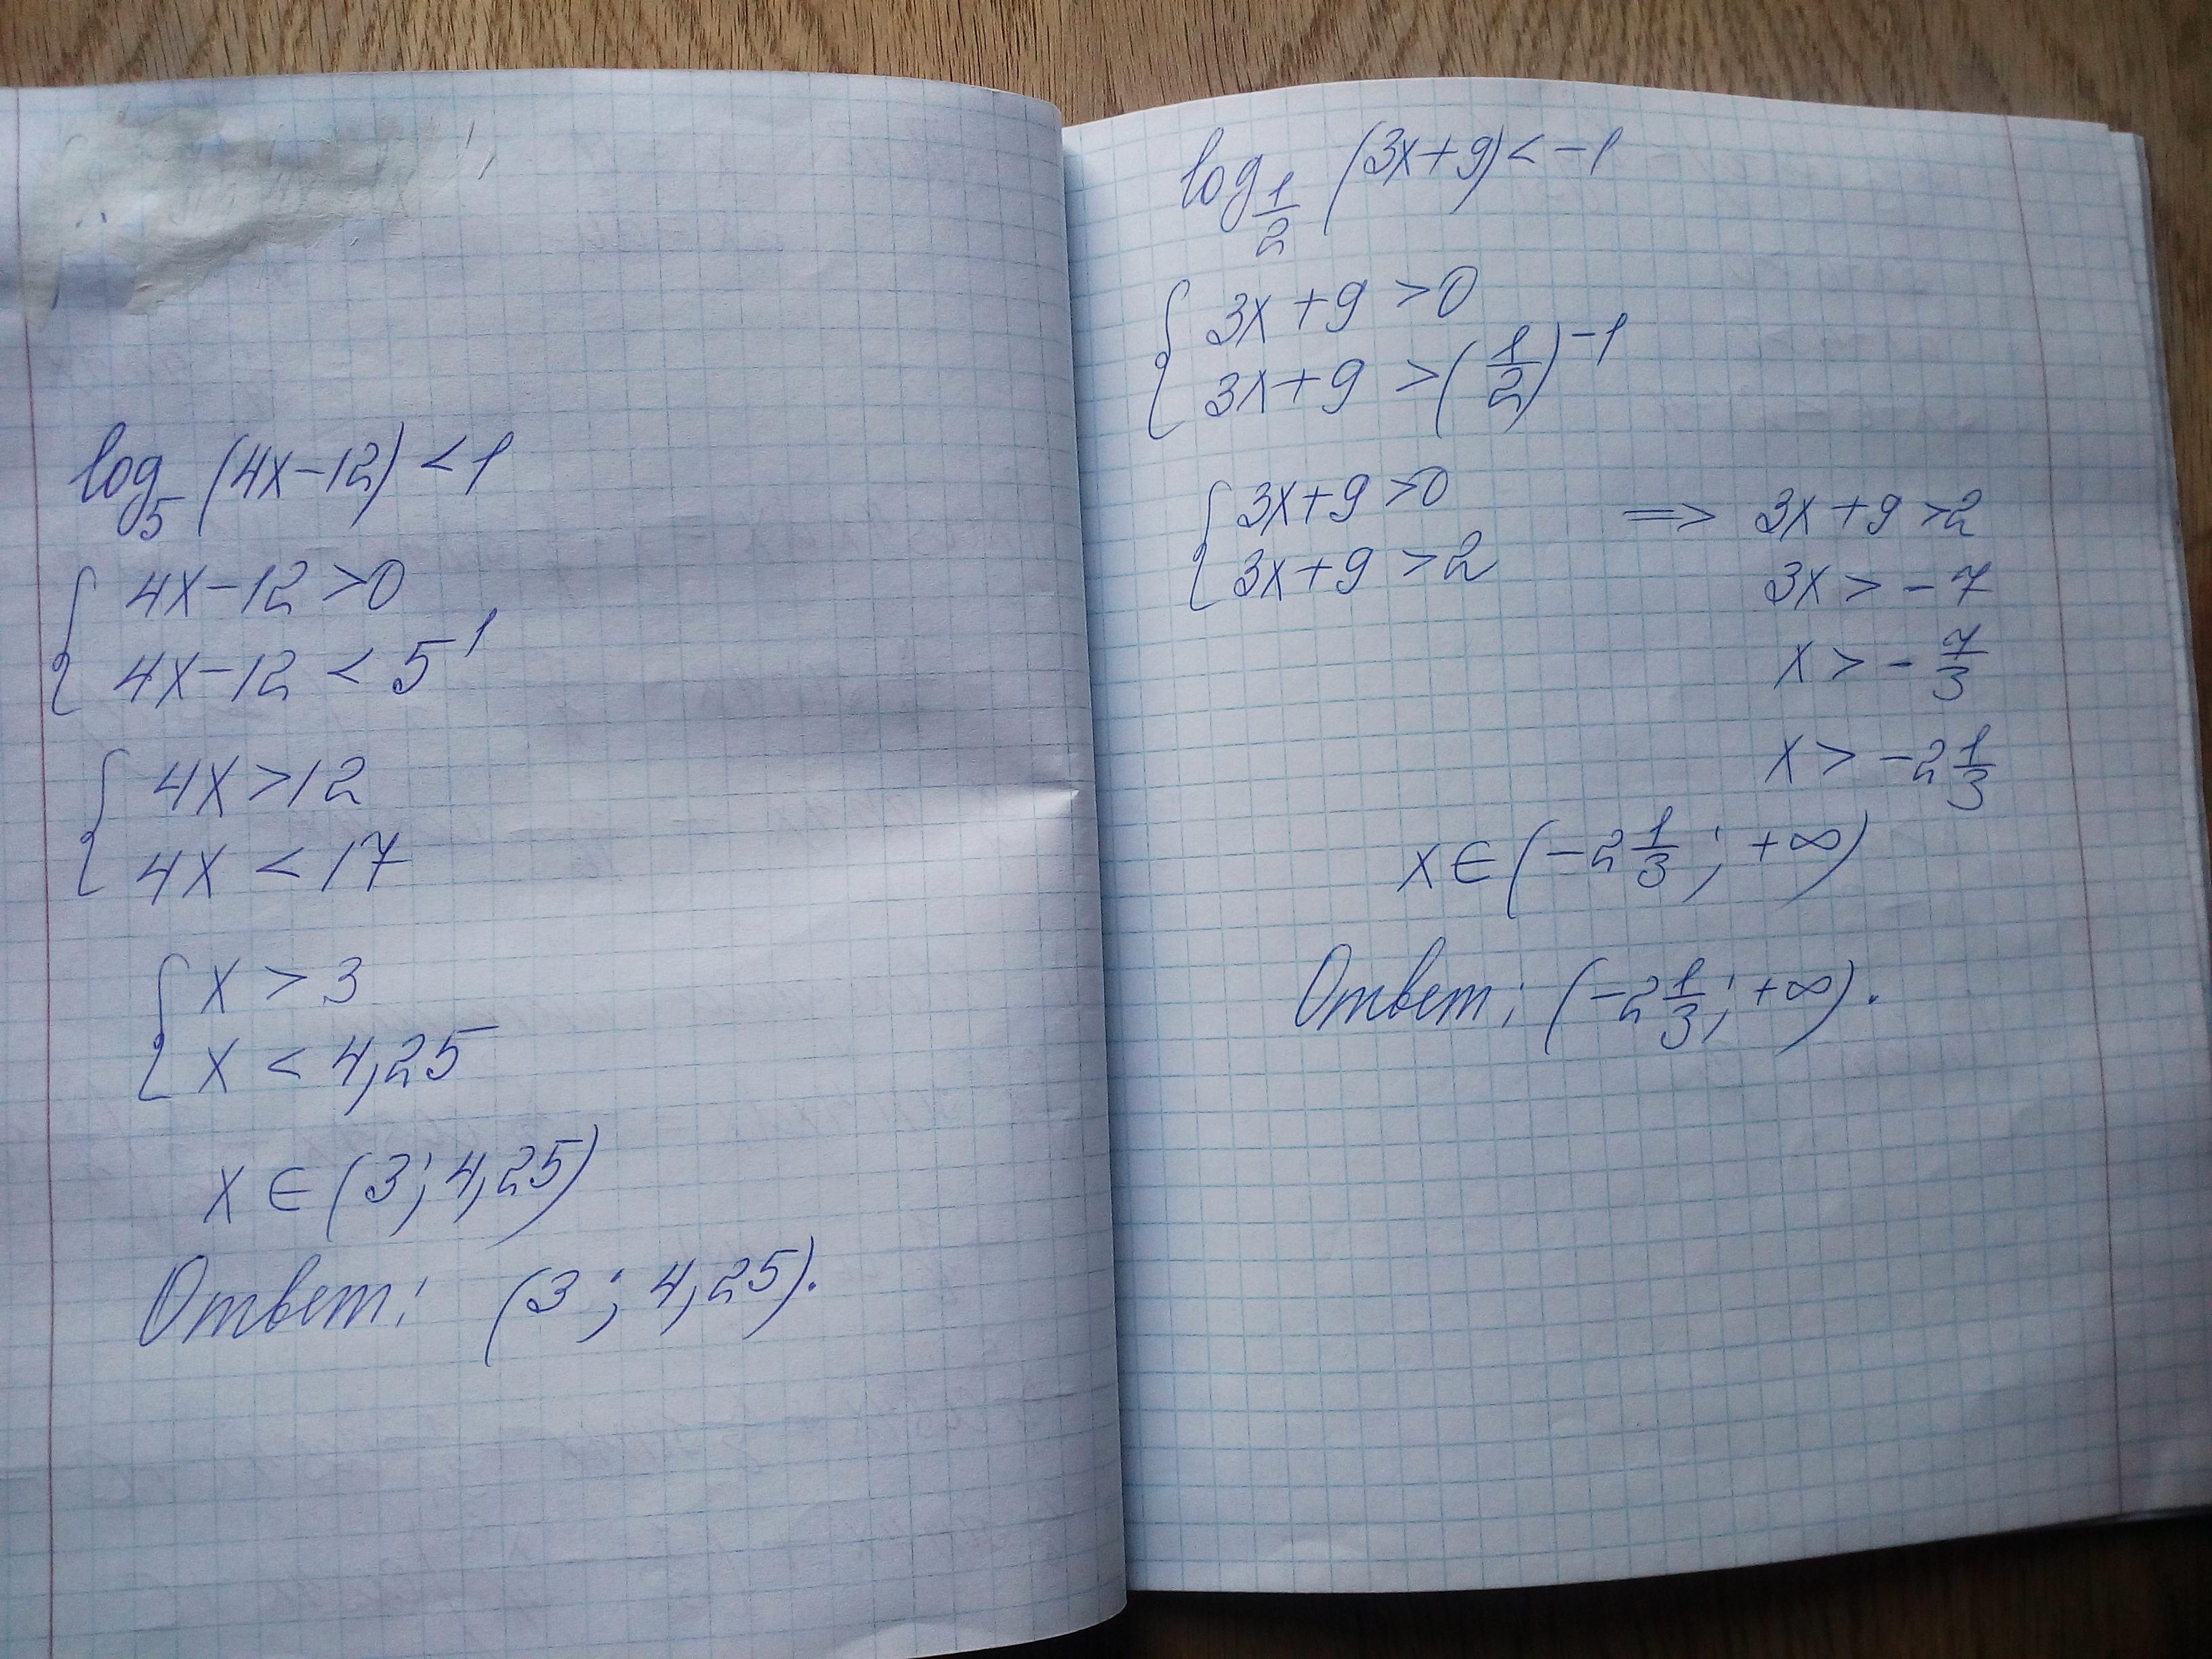 log₅ (4x-12) < 1
{ 4x-12 >0
4x-12 < 5¹
{ 4x >12
4x < 17
{ x > 3
x < 4,25
x ∈ (3; 4,25)
Ответ: (3; 4,25).
log 1/2 (3x+9) < -1
{ 3x+9 >0
3x+9 > (1/2)⁻¹
{ 3x+9 >0
3x+9 >2
=> 3x+9 >2
3x > -7
x > - 7/3
x > -2 1/3
x ∈ (-2 1/3; +∞)
Ответ: (-2 1/3; +∞).